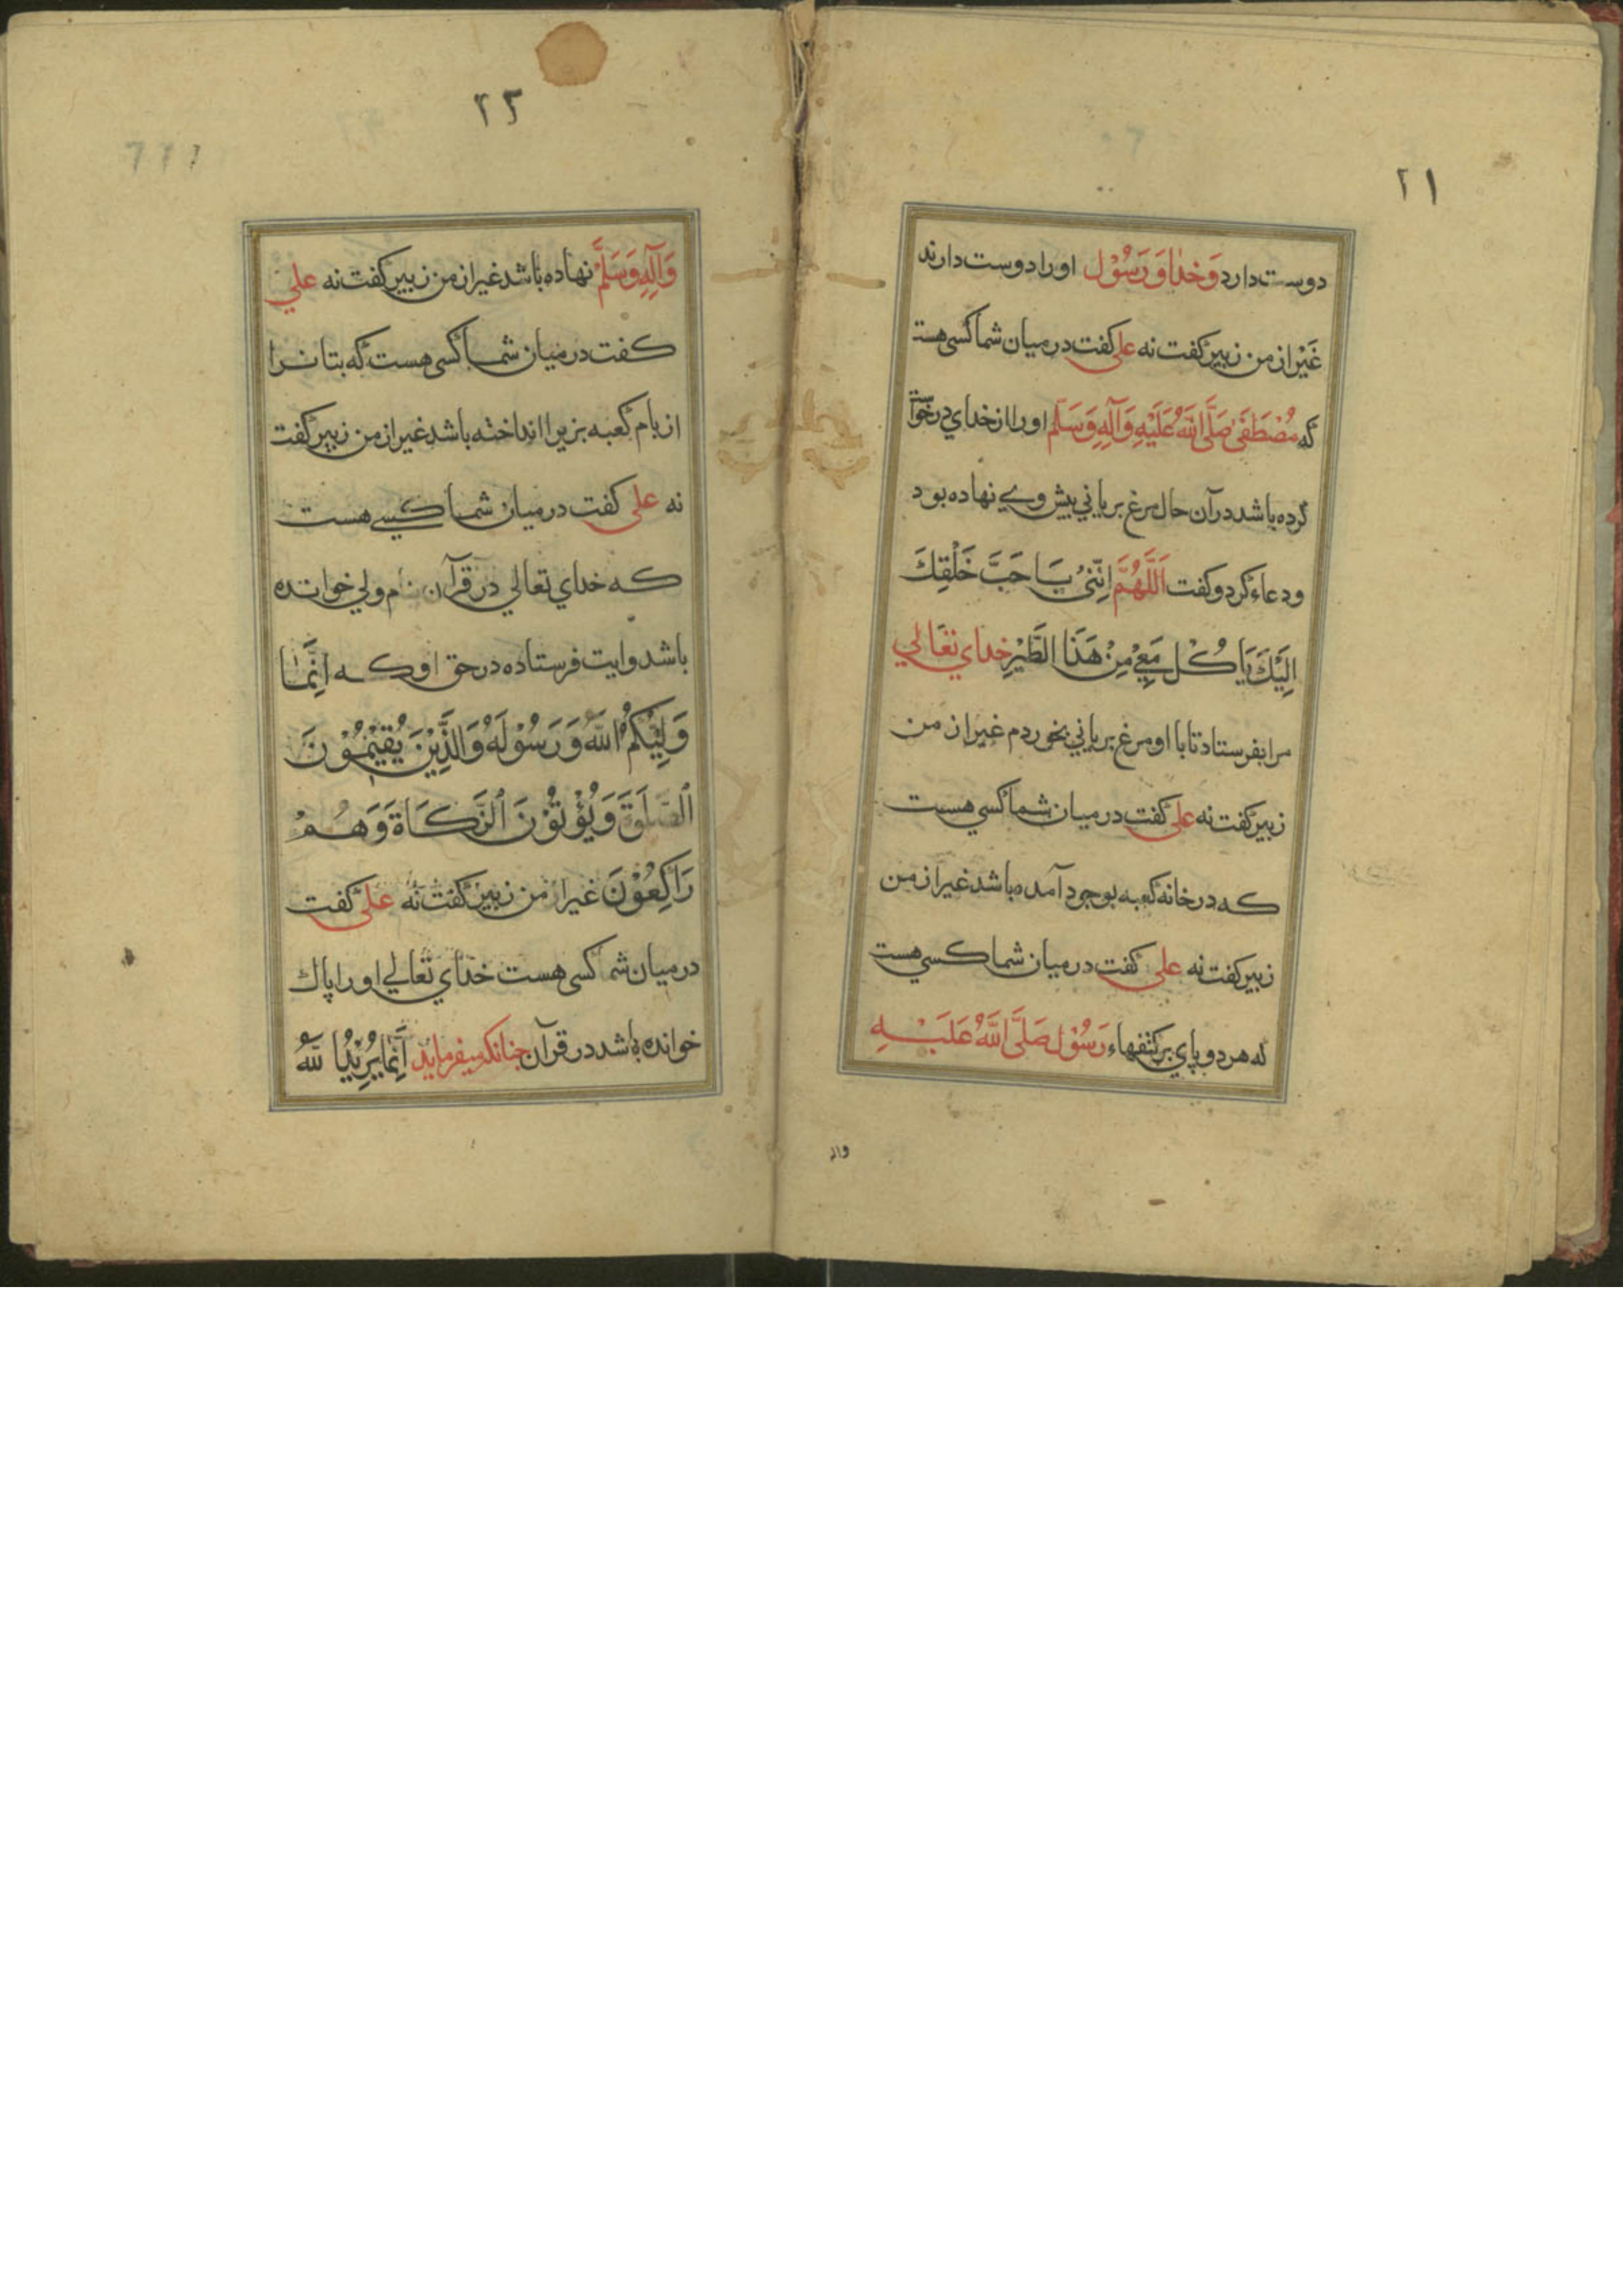 ۲۱
دوست دارد وَخدا وَرَسُوْل او را دوست دارند
غَيْر از من زبير گفت نه علي گفت در ميان شما كسي هست
كه مُصْطَفٰى صَلَّى اللّٰهُ عَلَيْهِ وَآلِهِ وَسَلَّم او را از خداي درخواست
كرده باشد در آن حال مرغ برياني پيش وے نهاده بود
ودعاء كرد و گفت اَللّٰهُمَّ اِتِّنِيْ بِاَحَبَّ خَلْقِكَ
اِلَيْكَ يَاكُلْ مَعِيْ مِنْ هَذَا الطَّيْرِ خداي تعَالي
مرا بفرستاد تا با او مرغ برياني بخوردم غير از من
زبير گفت نه علي گفت در ميان شما كسي هست
كه در خانه كعبه بوجود آمده باشد غير از من
زبير گفت نه علي گفت در ميان شما كسي هست
كه هر دو پاي بر كتفهاء رَسُوْل صَلَّى اللّٰهُ عَلَيْهِ
واله
۲۲
وَآلِهِ وَسَلَّمْ نهاده باشد غير از من زبير گفت نه علي
گفت در ميان شما كسي هست كه بتانرا
از بام كعبه بزير انداخته باشد غير از من زبير گفت
نه علي گفت در ميان شما كسي هست
كه خداي تعالي در قرآن نام ولي خوانده
باشد وايت فرستاده در حق او كه اِنَّمَا
وَلِيُّكُمُ اللّٰهُ وَرَسُوْلَهُ وَالَّذِيْنَ يُقِيْمُوْنَ
الصَّلَوٰةَ وَيُؤْتُوْنَ الزَّكَاةَ وَهُمْ
رَاكِعُوْنَ غير از من زبير گفت نه علي گفت
در ميان شما كسي هست خداي تعالي او را پاك
خوانده باشد در قرآن چنانكه ميفرمايد اِنَّمَا يُرِيْدُ اللّٰهُ